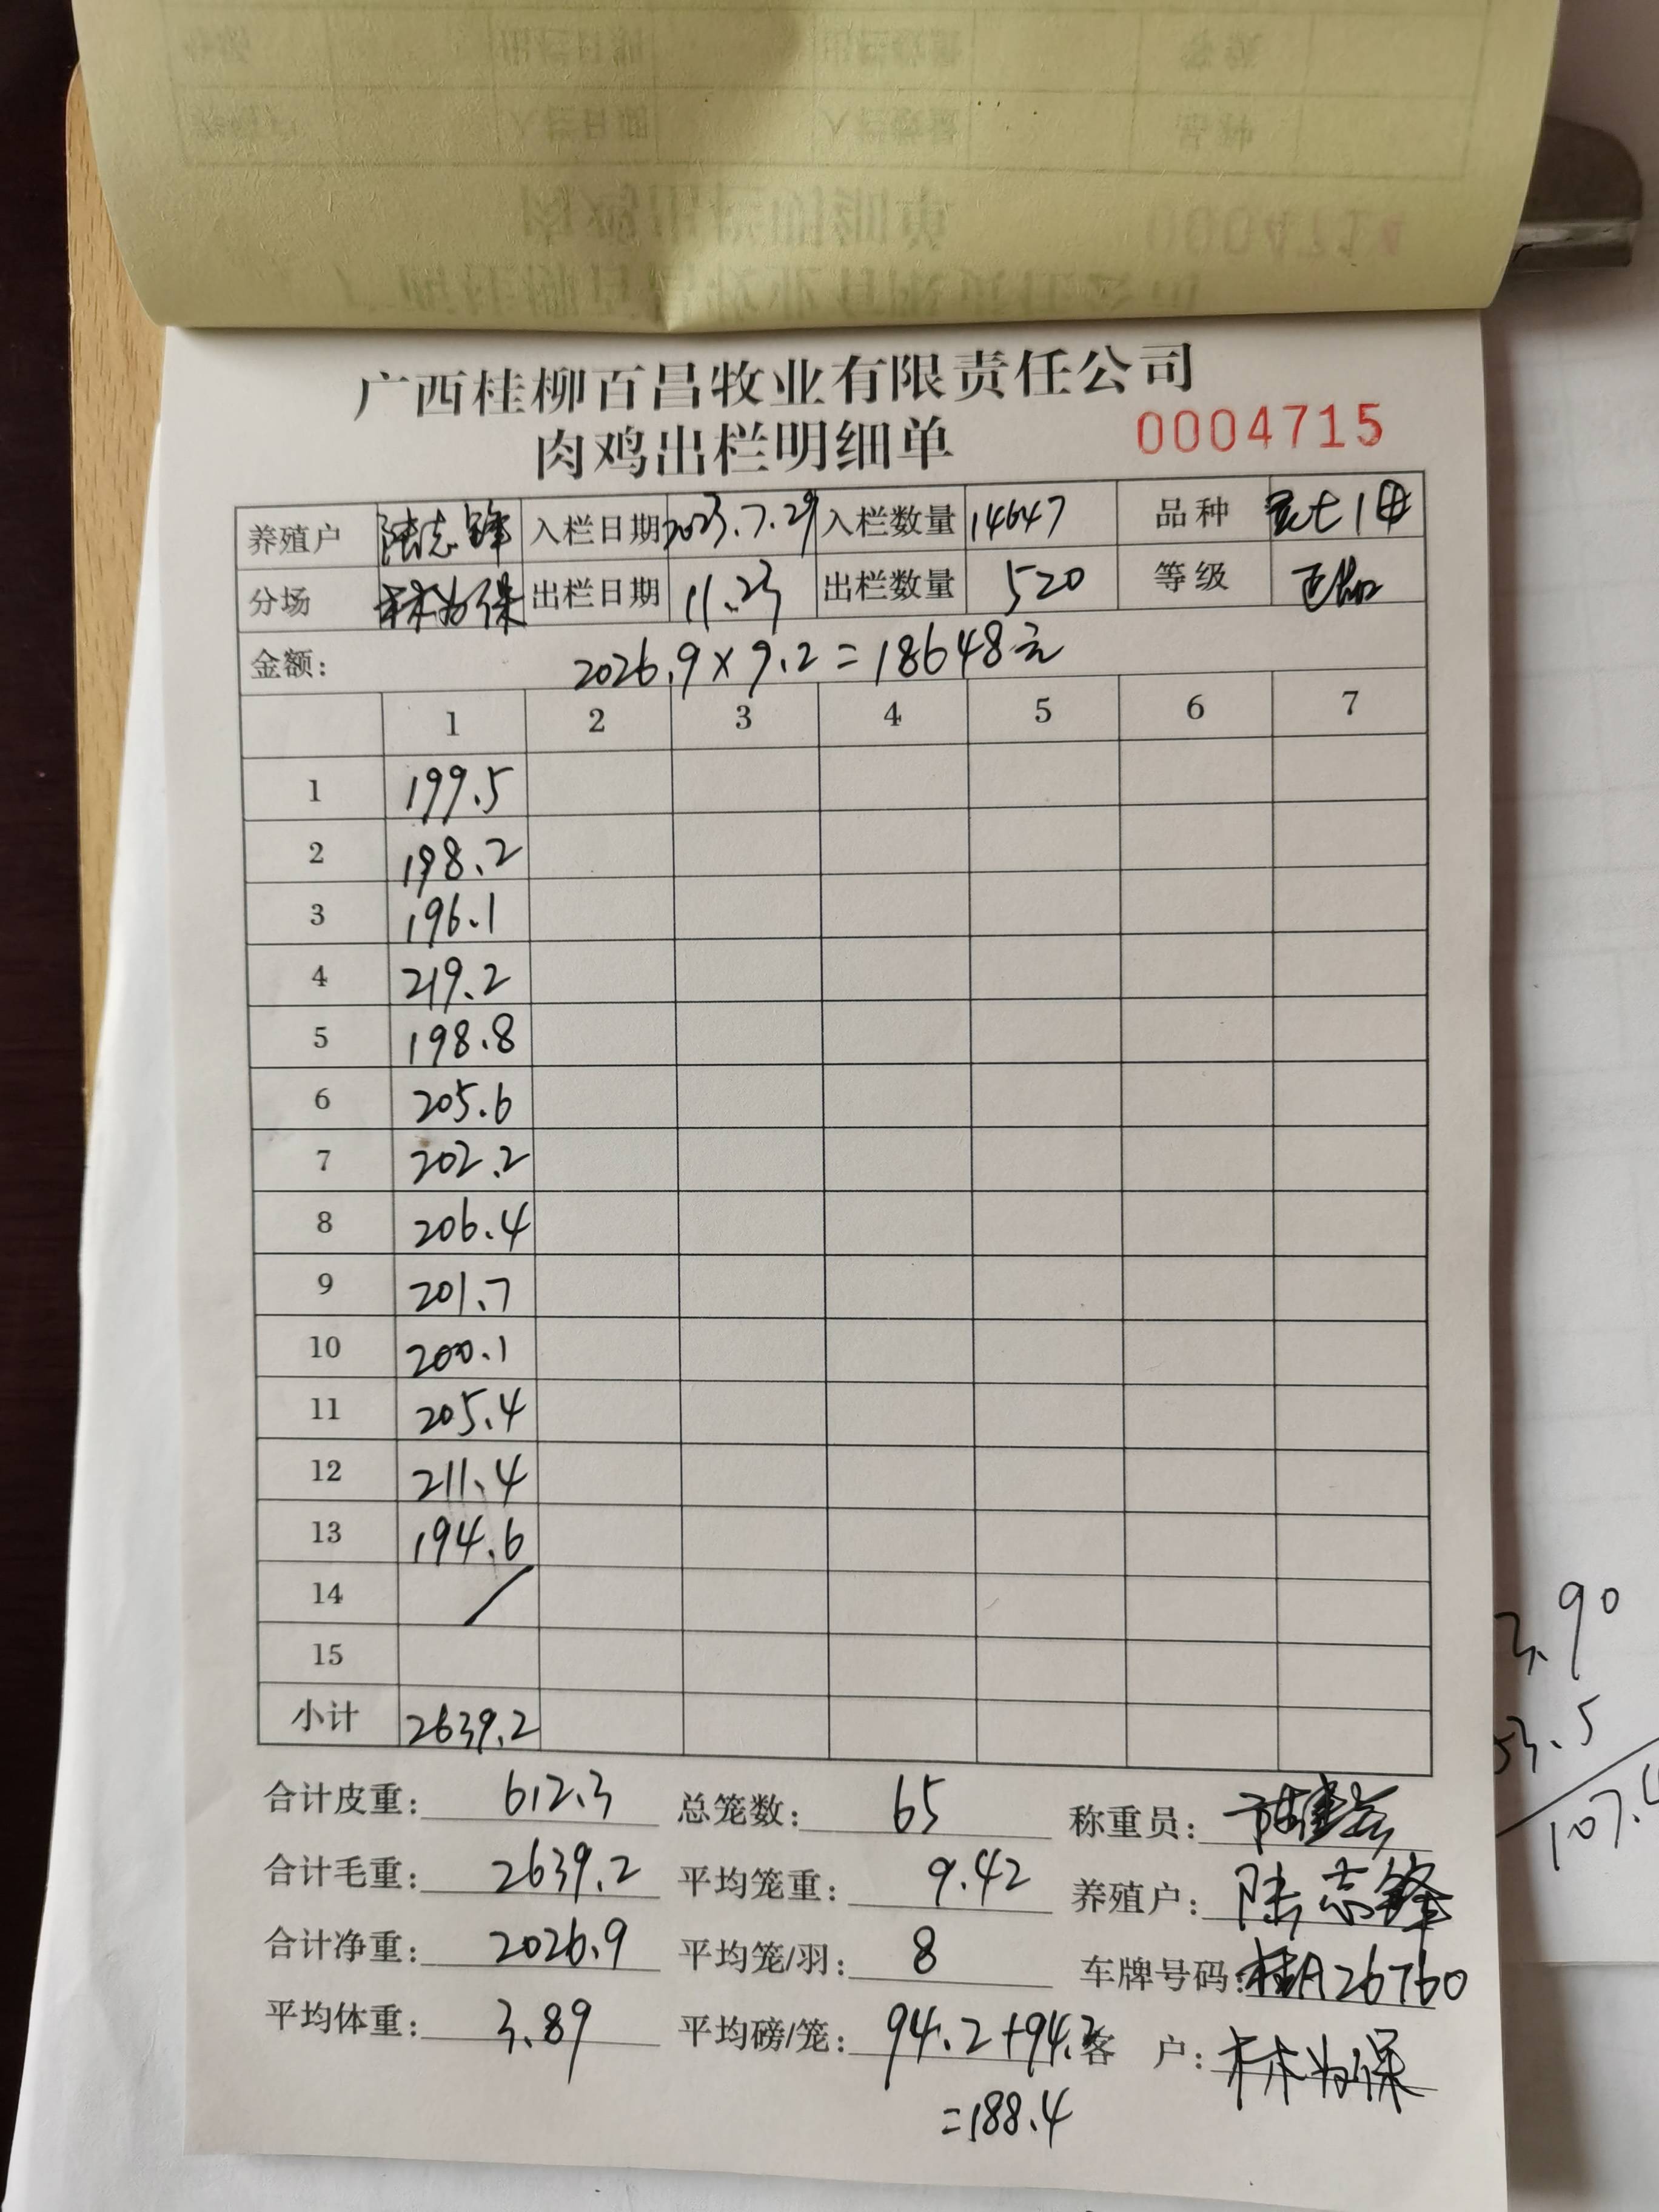 广西桂柳百昌牧业有限责任公司
肉鸡出栏明细单 0004715
养殖户 陆志锋 入栏日期 2023.7.29 入栏数量 14647 品种
分场 林为保 出栏日期 11.23 出栏数量 520 等级
金额: 2026.9×9.2=18648元
1 2 3 4 5 6 7
1 199.5
2 198.2
3 196.1
4 219.2
5 198.8
6 205.6
7 202.2
8 206.4
9 201.7
10 200.1
11 205.4
12 211.4
13 194.6
14
15
小计 2639.2
合计皮重: 612.3 总笼数: 65 称重员:
合计毛重: 2639.2 平均笼重: 9.42 养殖户: 陆志锋
合计净重: 2026.9 平均笼/羽: 8 车牌号码: 桂A26760
平均体重: 3.89 平均磅/笼: 94.2+94.2 客 户: 林为保
=188.4
3.90
53.5
107.4